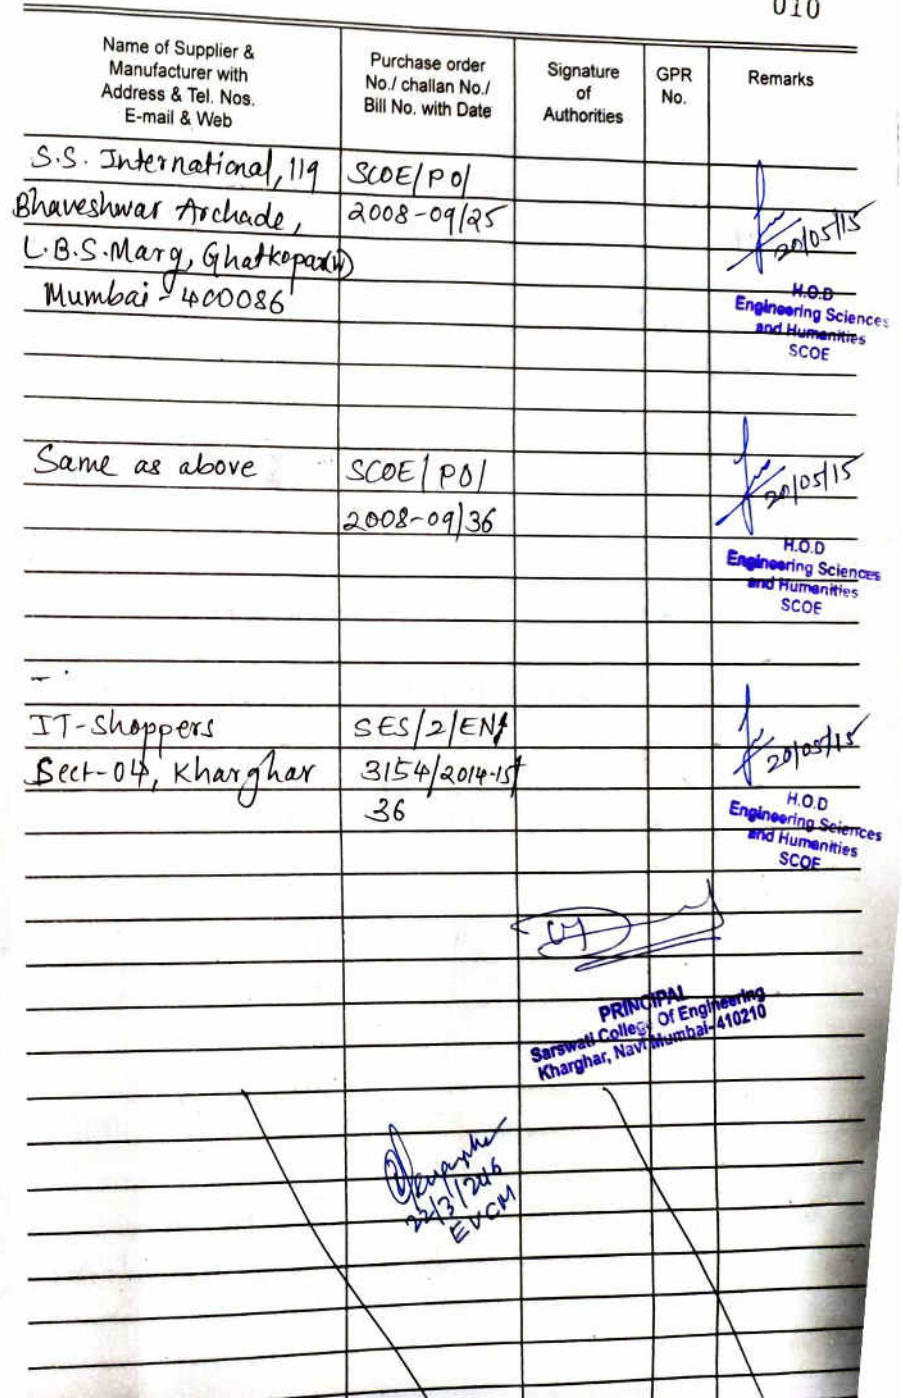 010
Name of Supplier &
Manufacturer with
Address & Tel. Nos.
E-mail & Web
Purchase order
No./ challan No./
Bill No. with Date
Signature
of
Authorities
GPR
No.
Remarks
S.S. International, 119
Bhaveshwar Archade,
L.B.S. Marg, Ghatkopar(W)
Mumbai - 400086
SCOE/PO/
2008-09/25
20/05/15
H.O.D
Engineering Sciences
and Humanities
SCOE
Same as above
SCOE/PO/
2008-09/36
20/05/15
H.O.D
Engineering Sciences
and Humanities
SCOE
IT-Shoppers
Sect-04, Kharghar
SES/2/EN/
3154/2014-15/
36
20/05/15
H.O.D
Engineering Sciences
and Humanities
SCOE
PRINCIPAL
Sarswati College Of Engineering
Kharghar, Navi Mumbai-410210